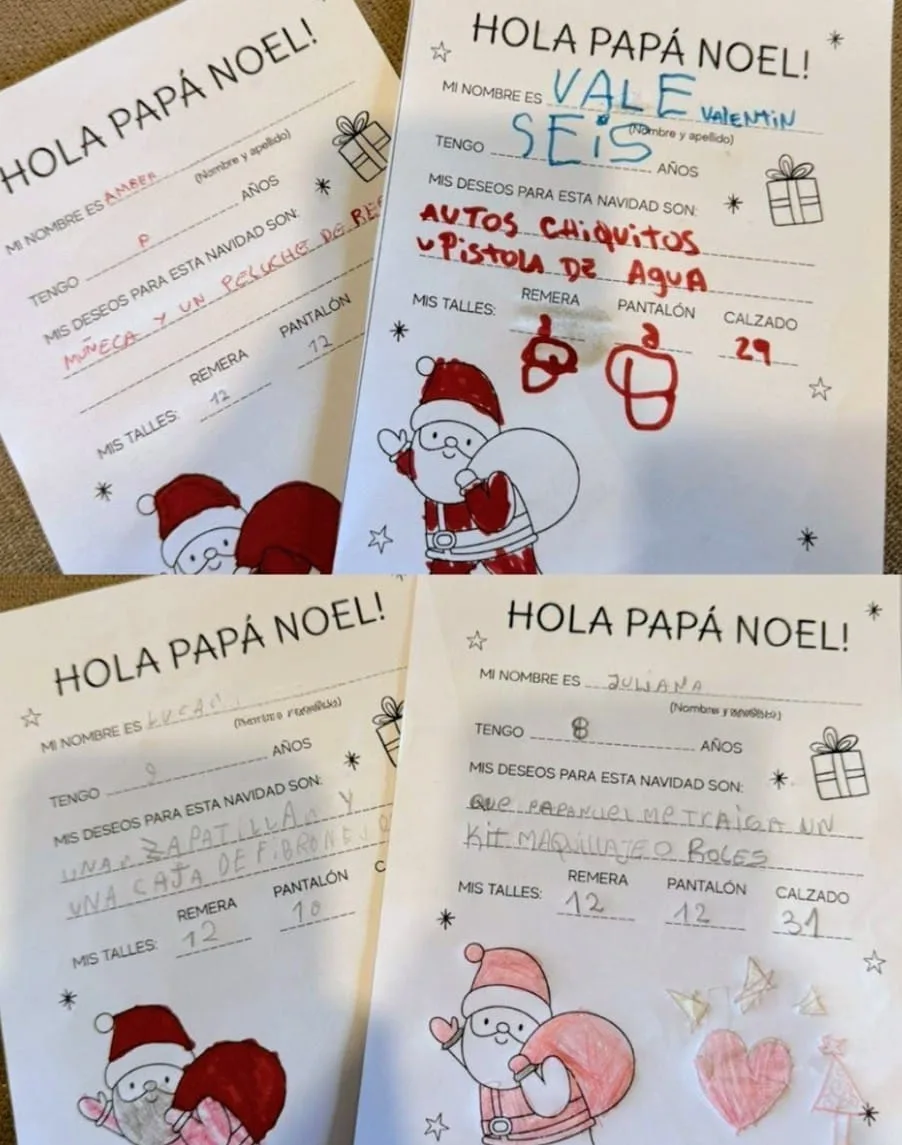 HOLA PAPÁ NOEL!
MI NOMBRE ES AMBER
(Nombre y apellido)
TENGO AÑOS
MIS DESEOS PARA ESTA NAVIDAD SON:
MUÑECA Y UN PELUCHE DE
REMERA PANTALÓN
MIS TALLES: 12 12
HOLA PAPÁ NOEL!
MI NOMBRE ES VALE VALENTIN
(Nombre y apellido)
TENGO SEIS AÑOS
MIS DESEOS PARA ESTA NAVIDAD SON:
AUTOS CHIQUITOS
PISTOLA DE AGUA
REMERA PANTALÓN CALZADO
MIS TALLES: 29
HOLA PAPÁ NOEL!
MI NOMBRE ES LUCAS
TENGO AÑOS
MIS DESEOS PARA ESTA NAVIDAD SON:
UNAS ZAPATILLAS Y
UNA CAJA DE FIBRONES
REMERA PANTALÓN C
MIS TALLES: 12 10
HOLA PAPÁ NOEL!
MI NOMBRE ES JULIANA
(Nombre y apellido)
TENGO 8 AÑOS
MIS DESEOS PARA ESTA NAVIDAD SON:
QUE PAPANUEL ME TRAIGA UN
KIT MAQUILLAJE O ROLES
REMERA PANTALÓN CALZADO
MIS TALLES: 12 12 31